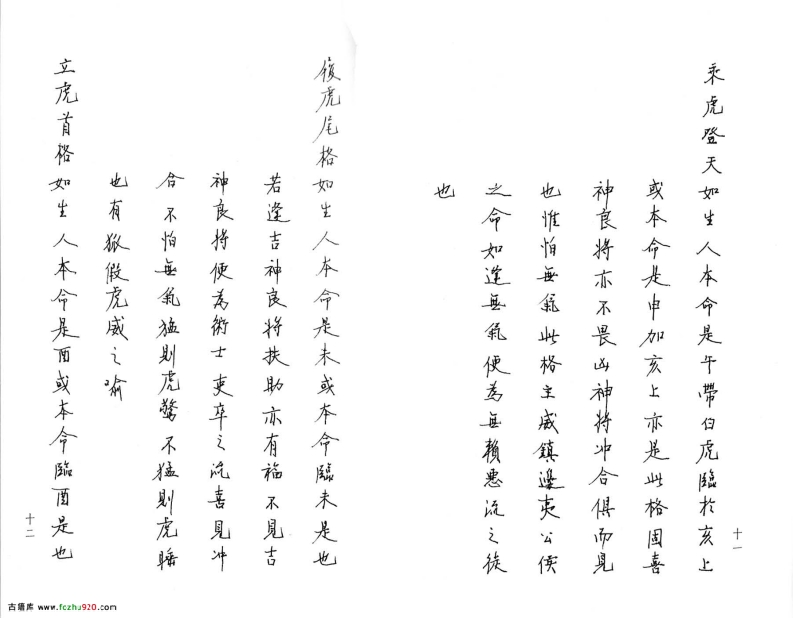 乘虎登天如生人本命是午帶白虎臨於亥上
或本命是申加亥上亦是此格固喜
神良將亦不畏凶神將冲合俱而見
也惟怕無氣此格主威鎮邊夷公侯
之命如逢無氣便為無賴惡流之徒
也
十一
履虎尾格如生人本命是未或本命臨未是也
若逢吉神良將扶助亦有福不見吉
神良將便為術士吏卒之流喜見冲
合不怕無氣猛則虎驚不猛則虎睡
也有狐假虎威之喻
立虎首格如生人本命是酉或本命臨酉是也
十二
古籍库 www.fczhu920.com